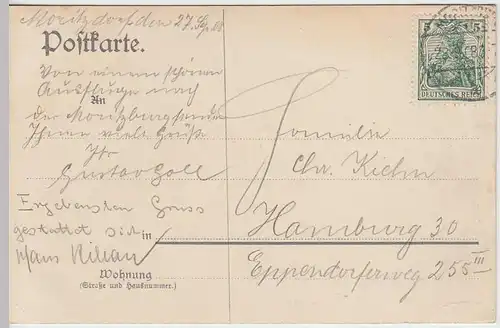 Moritzdorf den 27. Sep. 08
Postkarte.
Von einem schönen
Ausfluge nach
An
der Moritzburg sendet
Ihnen viele Grüße
Ihr
Gustav Goll
Ergebensten Gruss
gestattet sich
in
Hans Kilian
Wohnung
(Straße und Hausnummer.)
5 5
DEUTSCHES REICH
Familie
Chr. Kiehn
Hamburg 30
Eppendorferweg 255 III